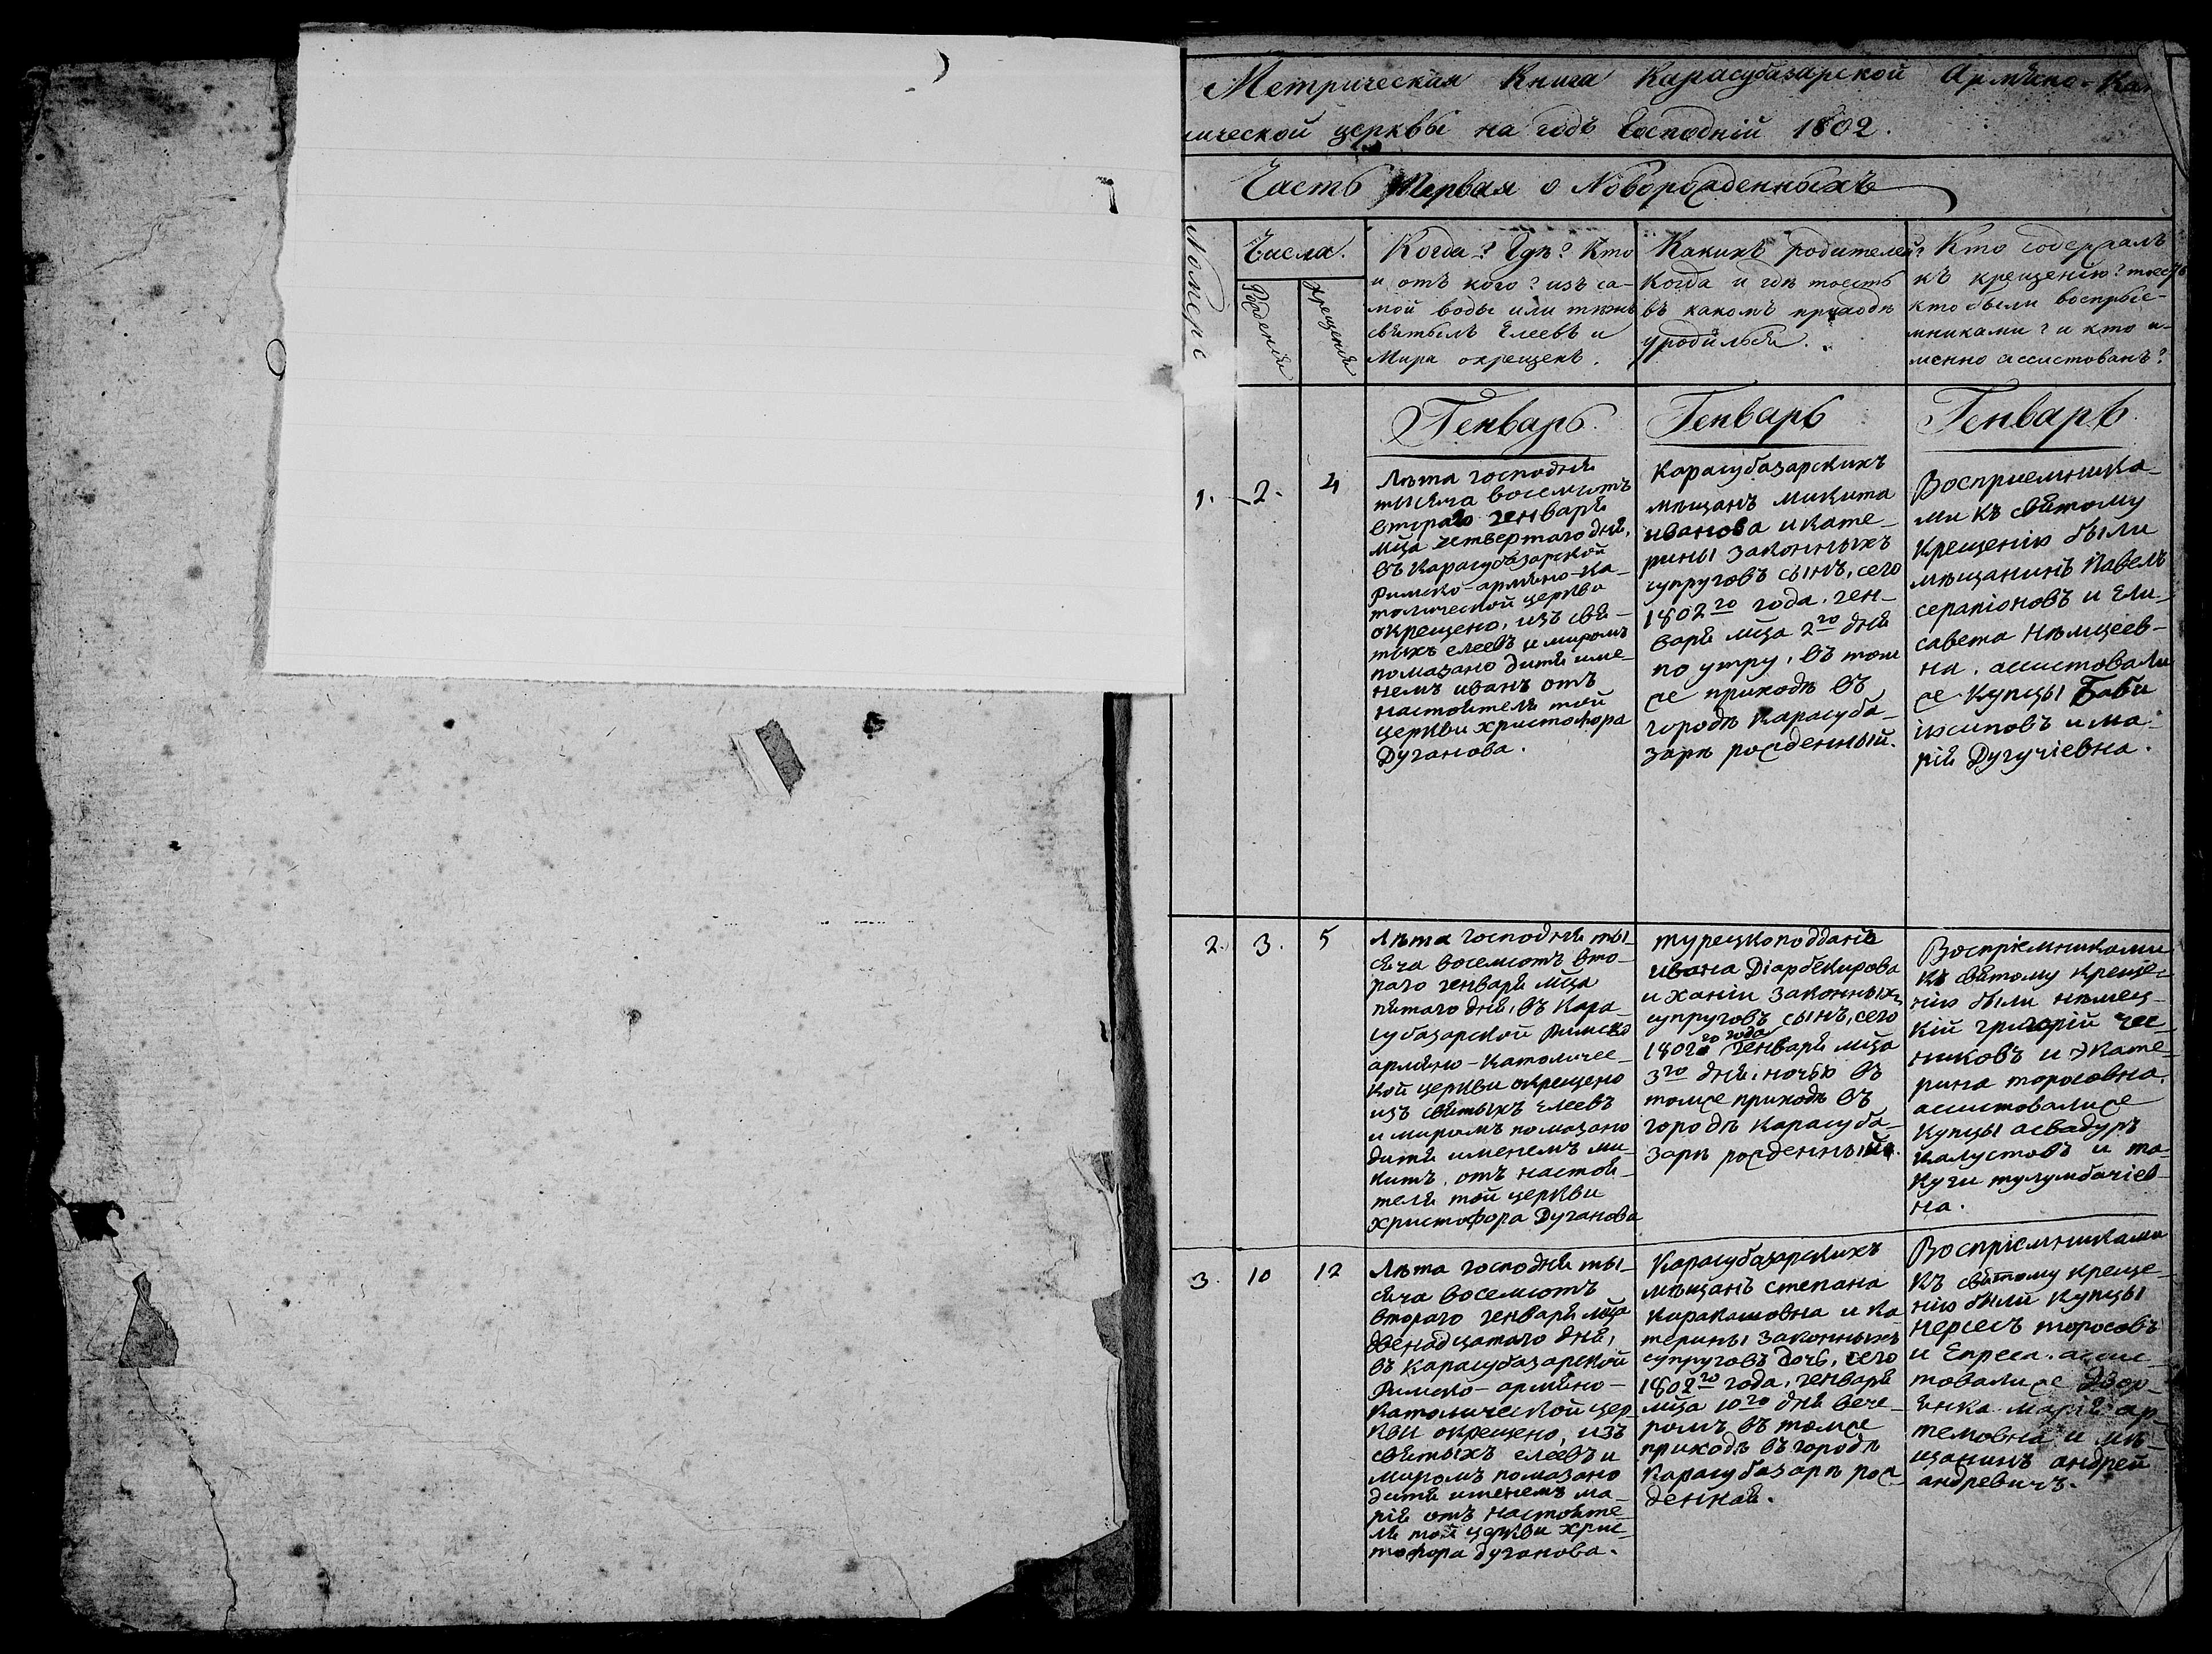 Метрическая Книга Карасубазарской Армѣно-Ка
лической церквы на годъ Господній 1802.
Часть Первая о Новорожденныхъ
Номеръ
Числа.
Рожденія
Крещенія
Когда? Гдѣ? Кто
и отъ кого? изъ са-
мой воды или тѣкмъ
святымъ Елеевъ и
Мира окрещенъ.
Какихъ родителей?
Когда и гдѣ тоесть
въ какомъ приходѣ
уродился.
Кто содержалъ
къ крещенію? тоесть
кто были воспріе-
мниками? и кто и-
менно ассистованъ?
Генварь.
Генварь
Генварь.
1.
2.
4
Лѣта господня
тысяча восемьсотъ
втораго генваря
мца четвертаго дня,
въ Карасубазарской
Римско-армяно-Ка-
толической церкво
окрещено, изъ свя-
тыхъ елеевъ и миромъ
помазано дитя име-
немъ иванъ отъ
настоятель той
церкви христофора
Дуганова.
Карасубазарскихъ
мѣщанъ микита
иванова и кате-
рины законныхъ
супруговъ сынъ, сего
1802го года, ген-
варя мца 2го дня
по утру, въ том
же приходѣ въ
городѣ Карасуба-
зарѣ рожденный.
Восприемника-
ми къ святому
Крещенію были
мѣщанинъ Павелъ
серапіоновъ и Ели-
савета Нѣмцеев-
на. ассистовали
же купцы Баби
іосиповъ и ма-
рія Дугучіевна.
2.
3.
5
Лѣта господня ты-
сяча восемсотъ вто-
раго генваря мца
пятаго дня, въ Кара-
субазарской Римско
армяно-Католичес-
кой церкви окрещено
изъ святыхъ елеевъ
и миромъ помазано
дитя именемъ ми-
китъ, отъ настоя-
теля той церкви
христофора Дуганова
турецкоподданъ
ивана Діарбекирова
и ханіи законныхъ
супруговъ сынъ, сего
1802го года генваря мца
3го дня, ночью въ
томже приходѣ въ
городѣ Карасуба-
зарѣ рожденный.
Воспріемниками
къ святому креще-
нію были нѣмец-
кій григорій чес-
никовъ и экате-
рина торосовна.
ассистовалиже
купцы асвадуръ
калустовъ и та-
куги тулумбачіев-
на.
3.
10
12
Лѣта господня ты-
сяча восемсотъ
втораго генваря мца
двенадцатаго дня,
въ Карасубазарской
Римско-армяно-
католической цер-
кви окрещено, изъ
святыхъ елеевъ и
миромъ помазано
дитя именемъ ма-
рія отъ настояте-
ля той церкви хрис-
тофора дуганова.
Карасубазарскихъ
мѣщанъ степана
каракашовна и ка
терины законныхъ
супруговъ дочь, сего
1802го года, генваря
мца 10го дня вече-
ромъ въ томже
приходѣ въ городѣ
Карасубазарѣ рож
денная.
Воспріемниками
къ святому креще-
нію были купцы
нерсесъ торосовъ
и Епреса. ассис-
товали же двор-
янка марія ар-
темовна и мѣ-
щанинъ андрей
андревичъ.